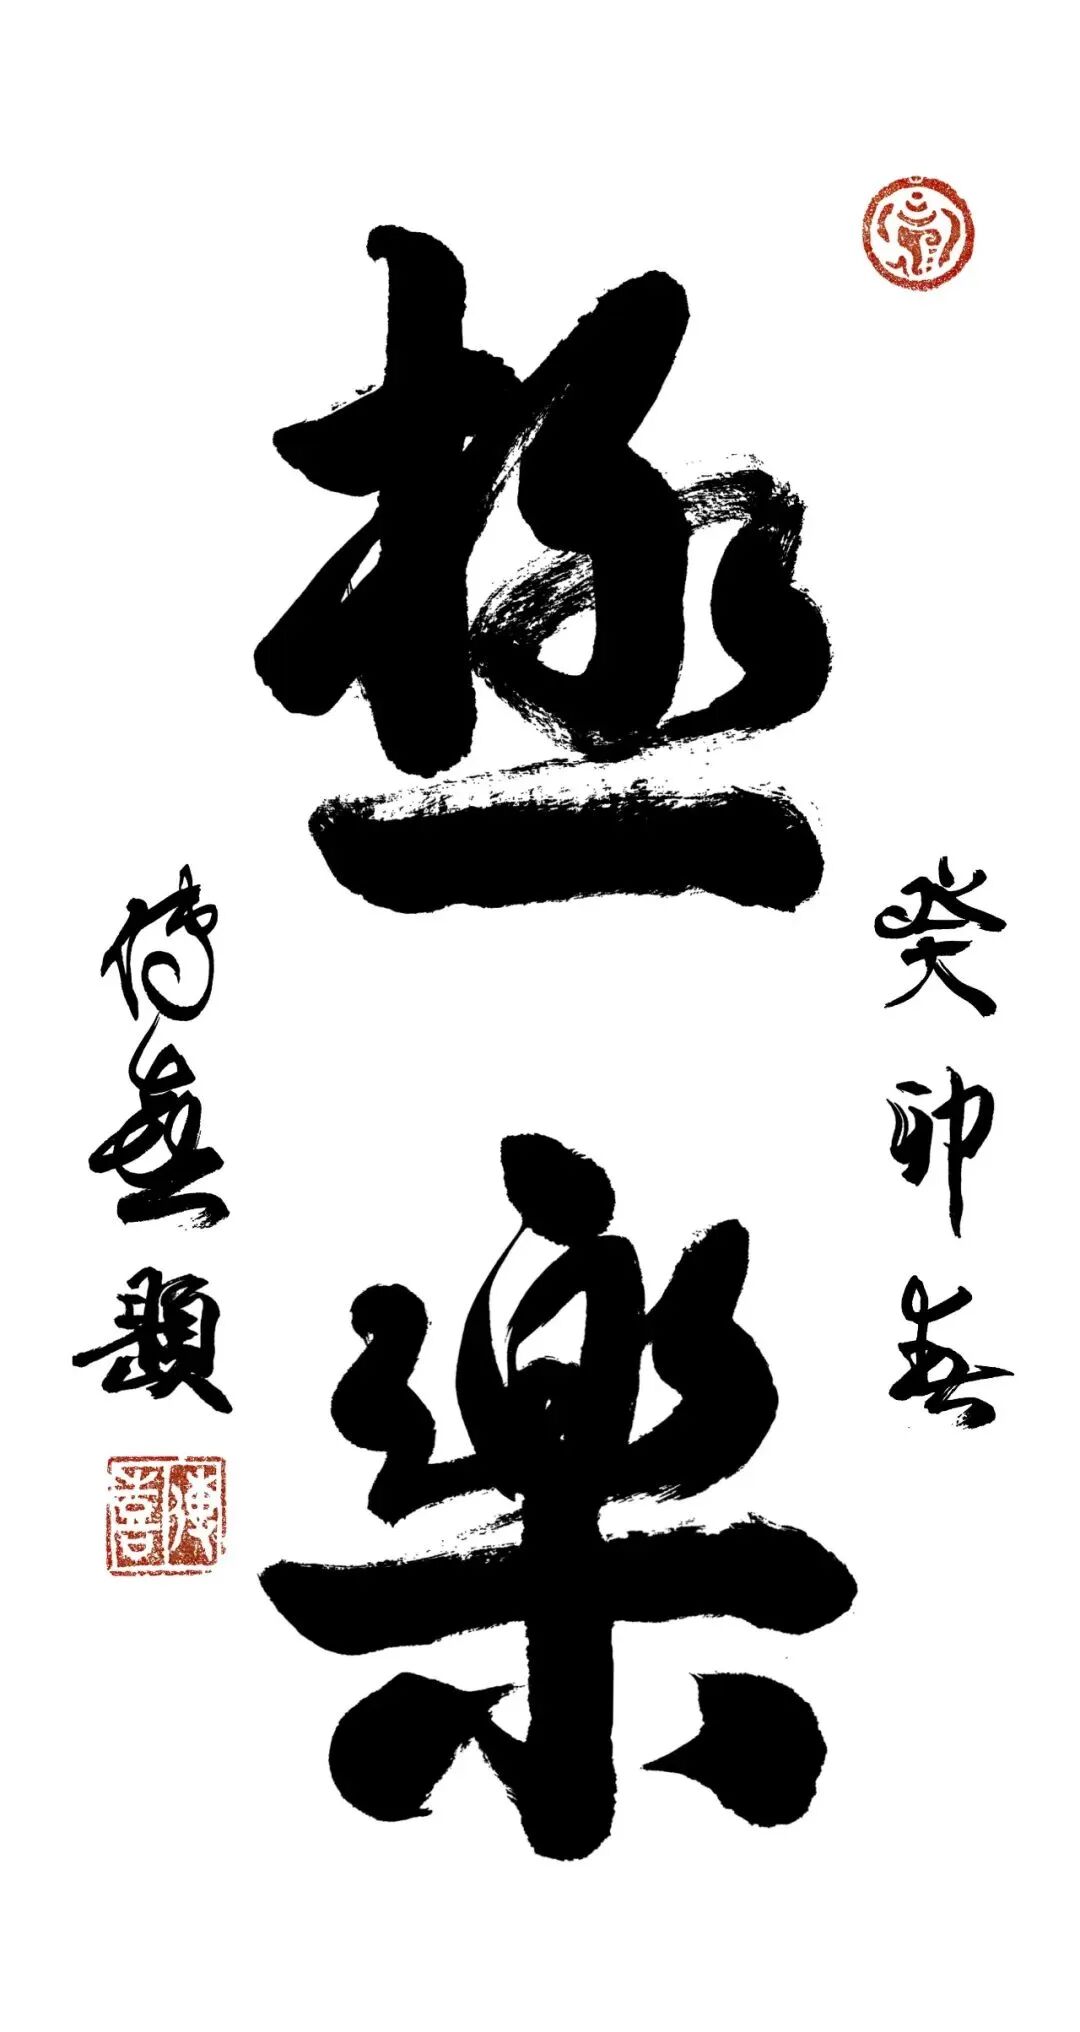 癸卯春
極樂
傳喜題
傳喜